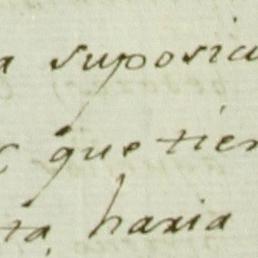 a suposici
que tien
ta haria